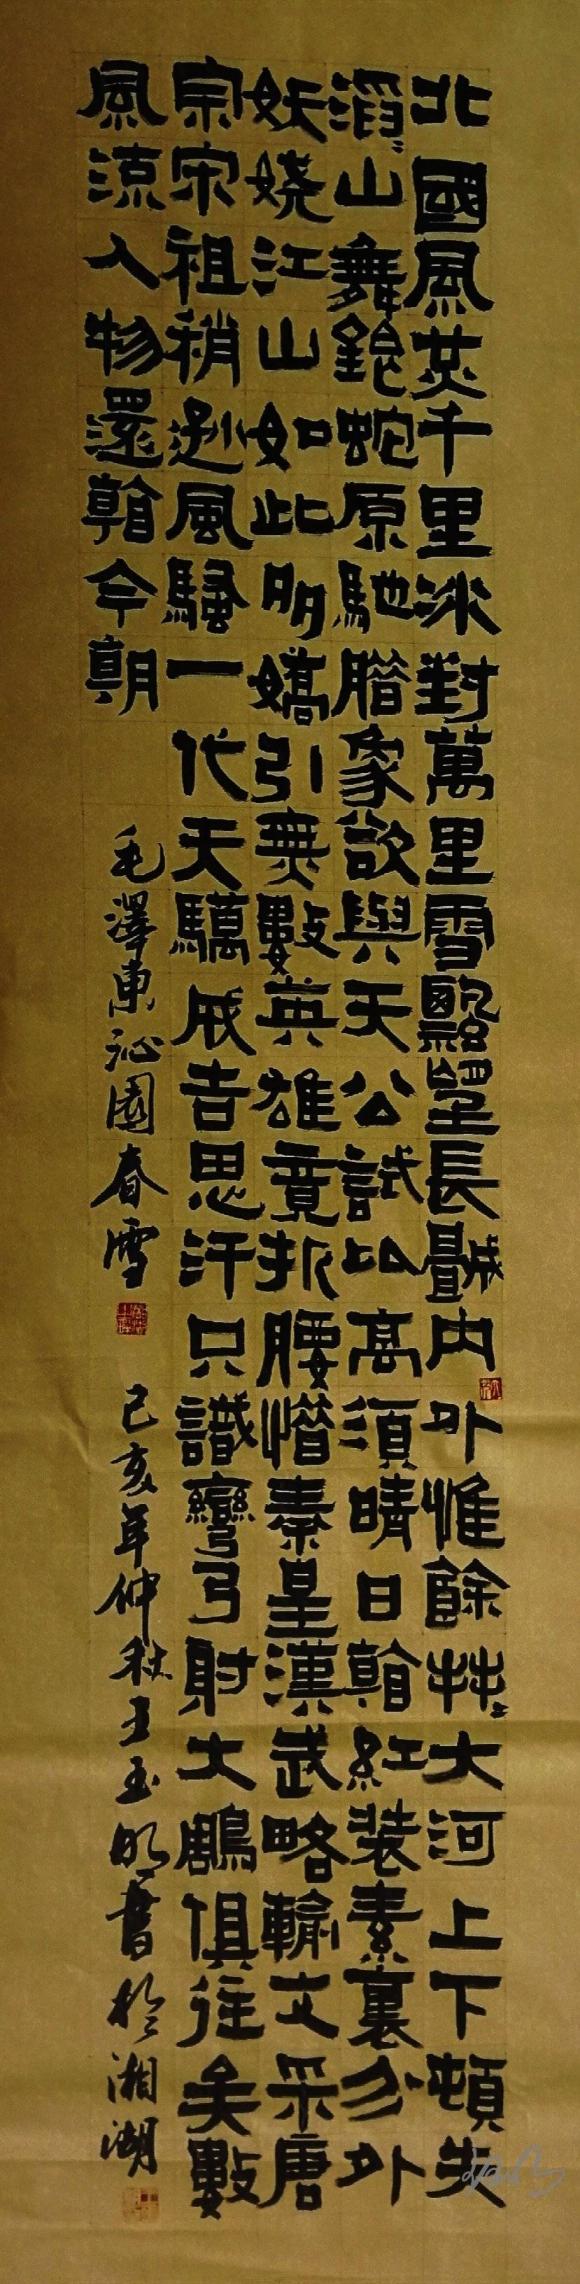 北國風光千里冰封萬里雪飄望長城內外惟餘莽々大河上下頓失
滔々山舞銀蛇原馳腊象欲與天公試比高須晴日看紅装素裹分外
妖嬈江山如此多嬌引無數英雄竟折腰惜秦皇漢武略輸文采唐
宗宋祖稍遜風騷一代天驕成吉思汗只識彎弓射大鵰俱往矣數
風流人物還看今朝
毛澤東沁園春雪
己亥年仲秋王玉明書於湘湖